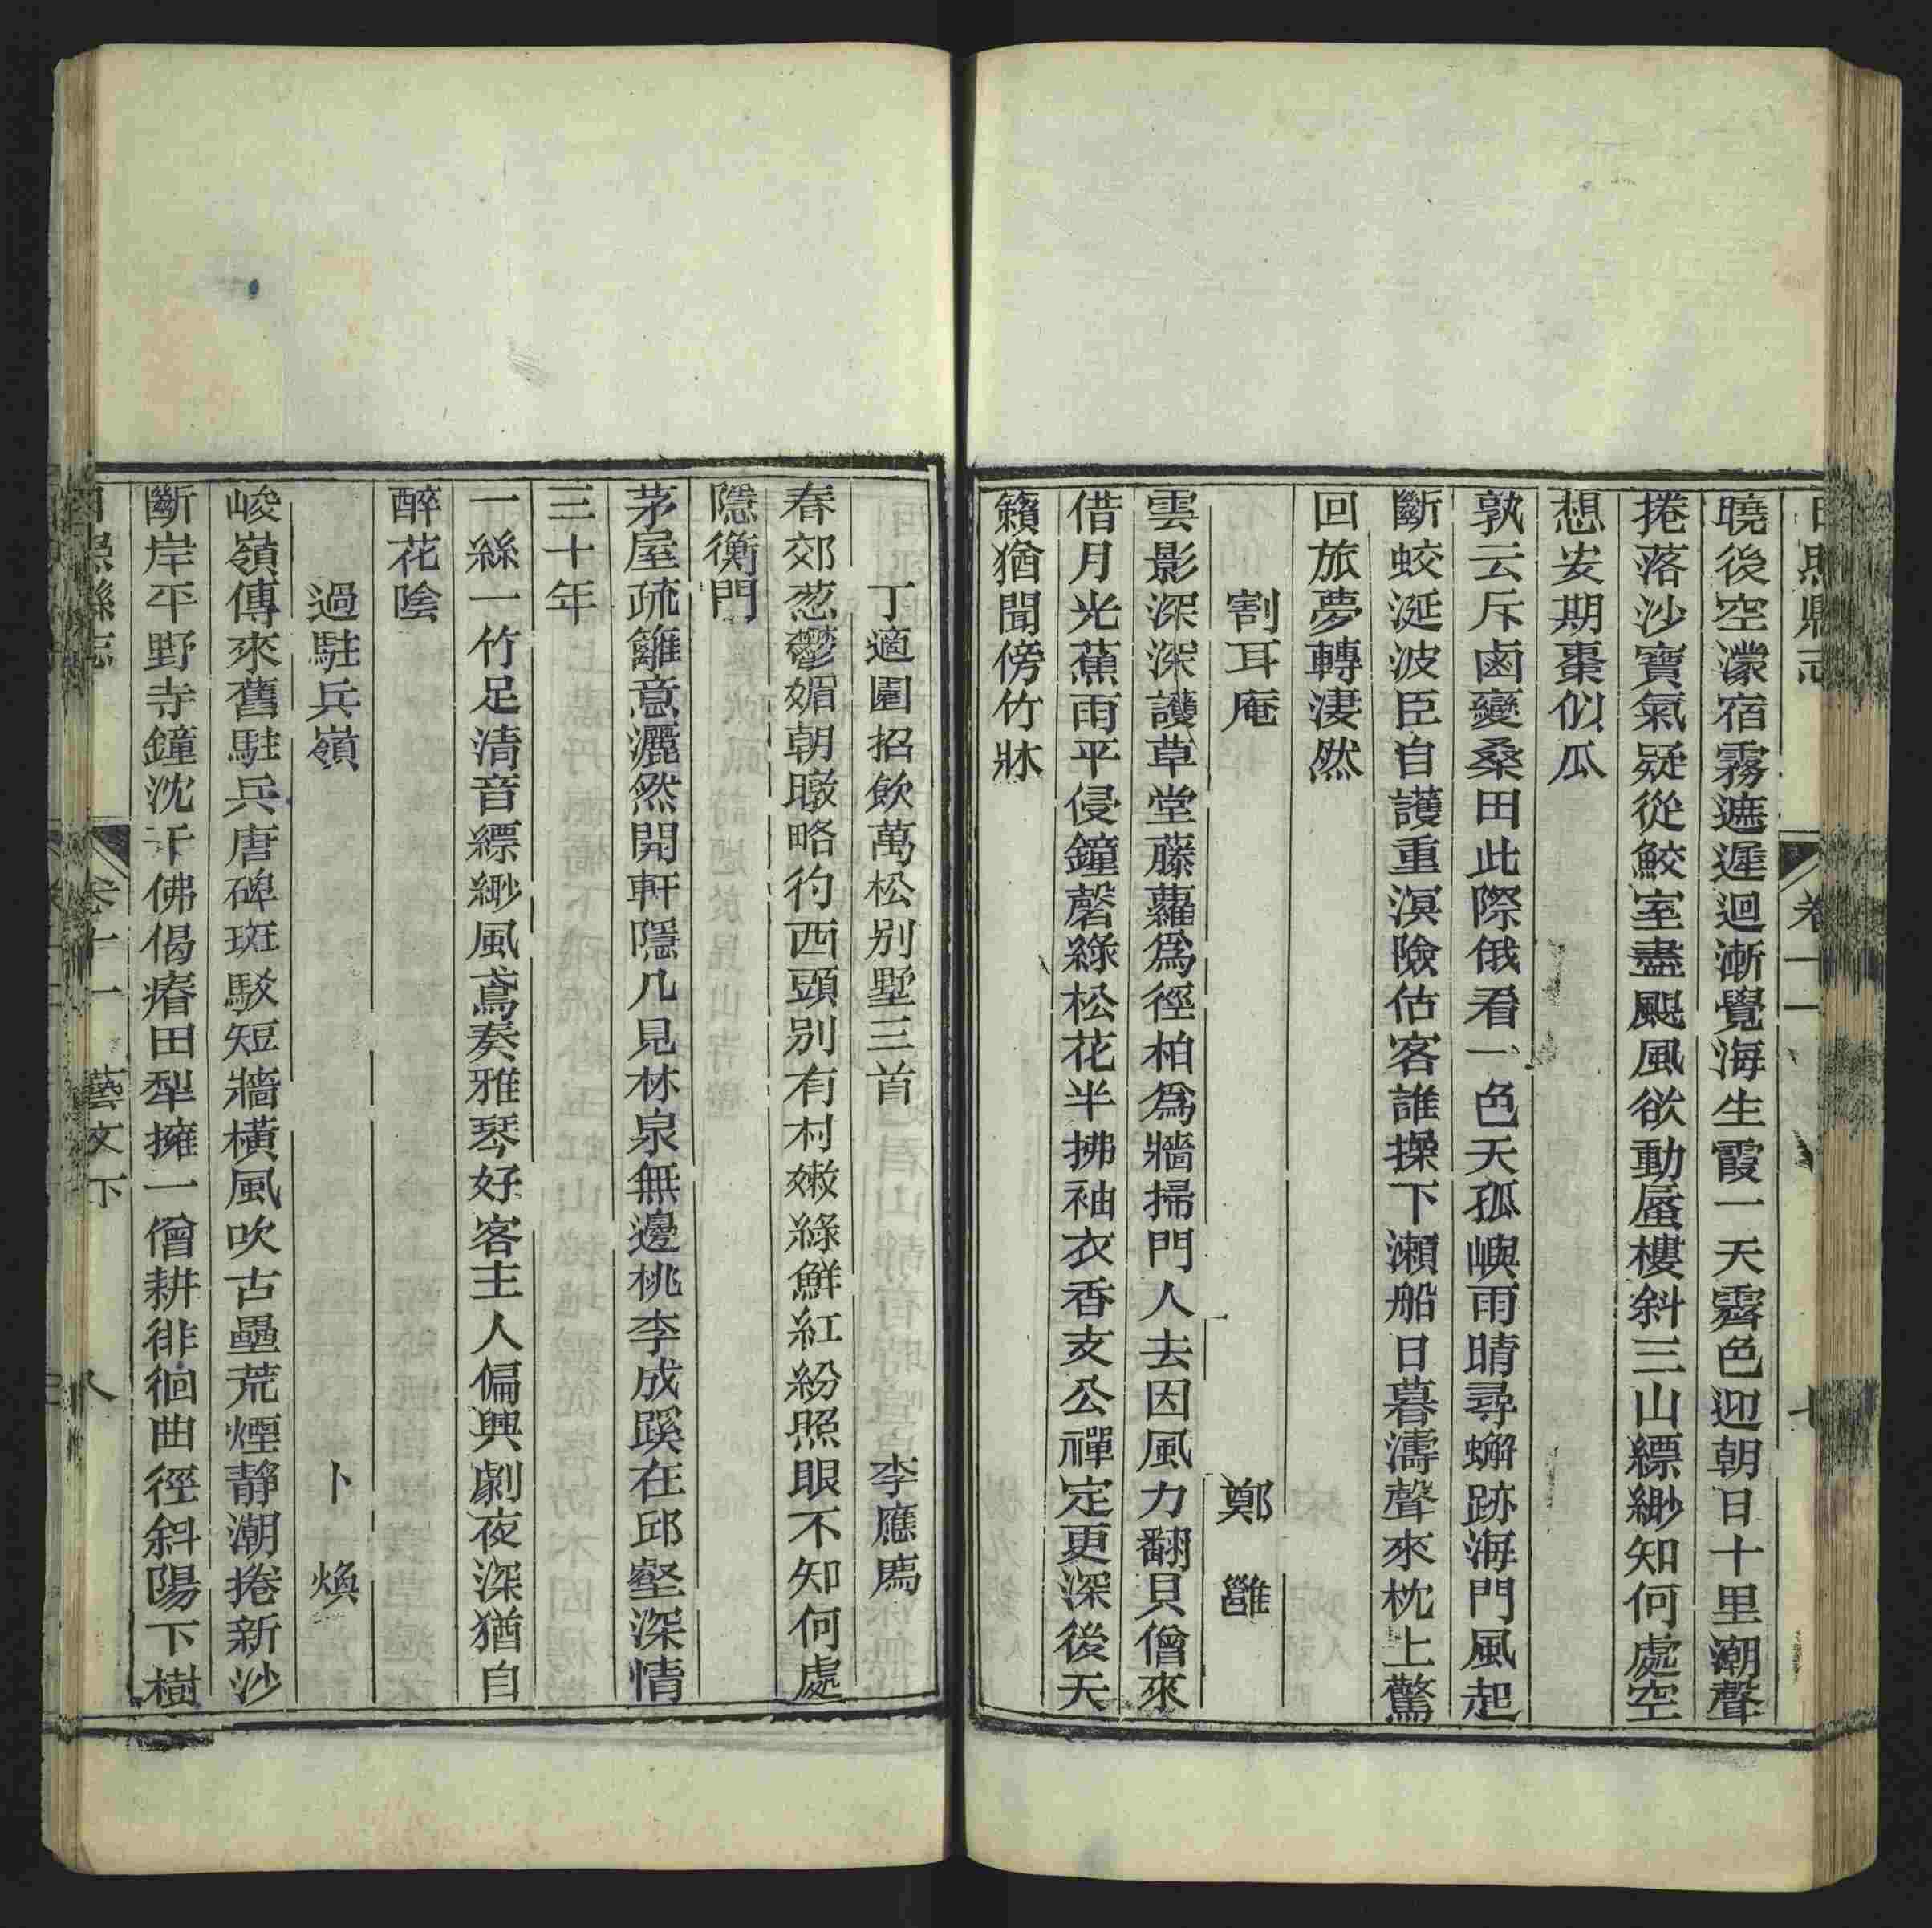 日照縣志 卷十一 七
曉後空濛宿霧遮遲迴漸覺海生霞一天霽色迎朝日十里潮聲
捲落沙寶氣疑從鮫室盡颶風欲動蜃樓斜三山縹緲知何處空
想安期棗似瓜
孰云斥鹵變桑田此際俄看一色天孤嶼雨晴尋蠏跡海門風起
斷蛟涎波臣自護重溟險估客誰操下瀨船日暮濤聲來枕上驚
回旅夢轉淒然
割耳庵 鄭雝
雲影深深護草堂藤蘿爲徑柏爲牆掃門人去因風力翻貝僧來
借月光蕉雨平侵鐘磬綠松花半拂袖衣香支公禪定更深後天
籟猶聞傍竹牀
丁適園招飲萬松别墅三首 李應廌
春郊葱鬱媚朝暾略彴西頭别有村嫩綠鮮紅紛照眼不知何處
隱衡門
茅屋疏籬意灑然開軒隱几見林泉無邊桃李成蹊在邱壑深情
三十年
一絲一竹足清音縹緲風鳶奏雅琴好客主人偏興劇夜深猶自
醉花陰
過駐兵嶺 卜煥
峻嶺傳來舊駐兵唐碑斑駁短牆橫風吹古壘荒煙靜潮捲新沙
斷岸平野寺鐘沈千佛偈瘠田犁擁一僧耕徘徊曲徑斜陽下樹
日照縣志 卷十一 藝文下 八